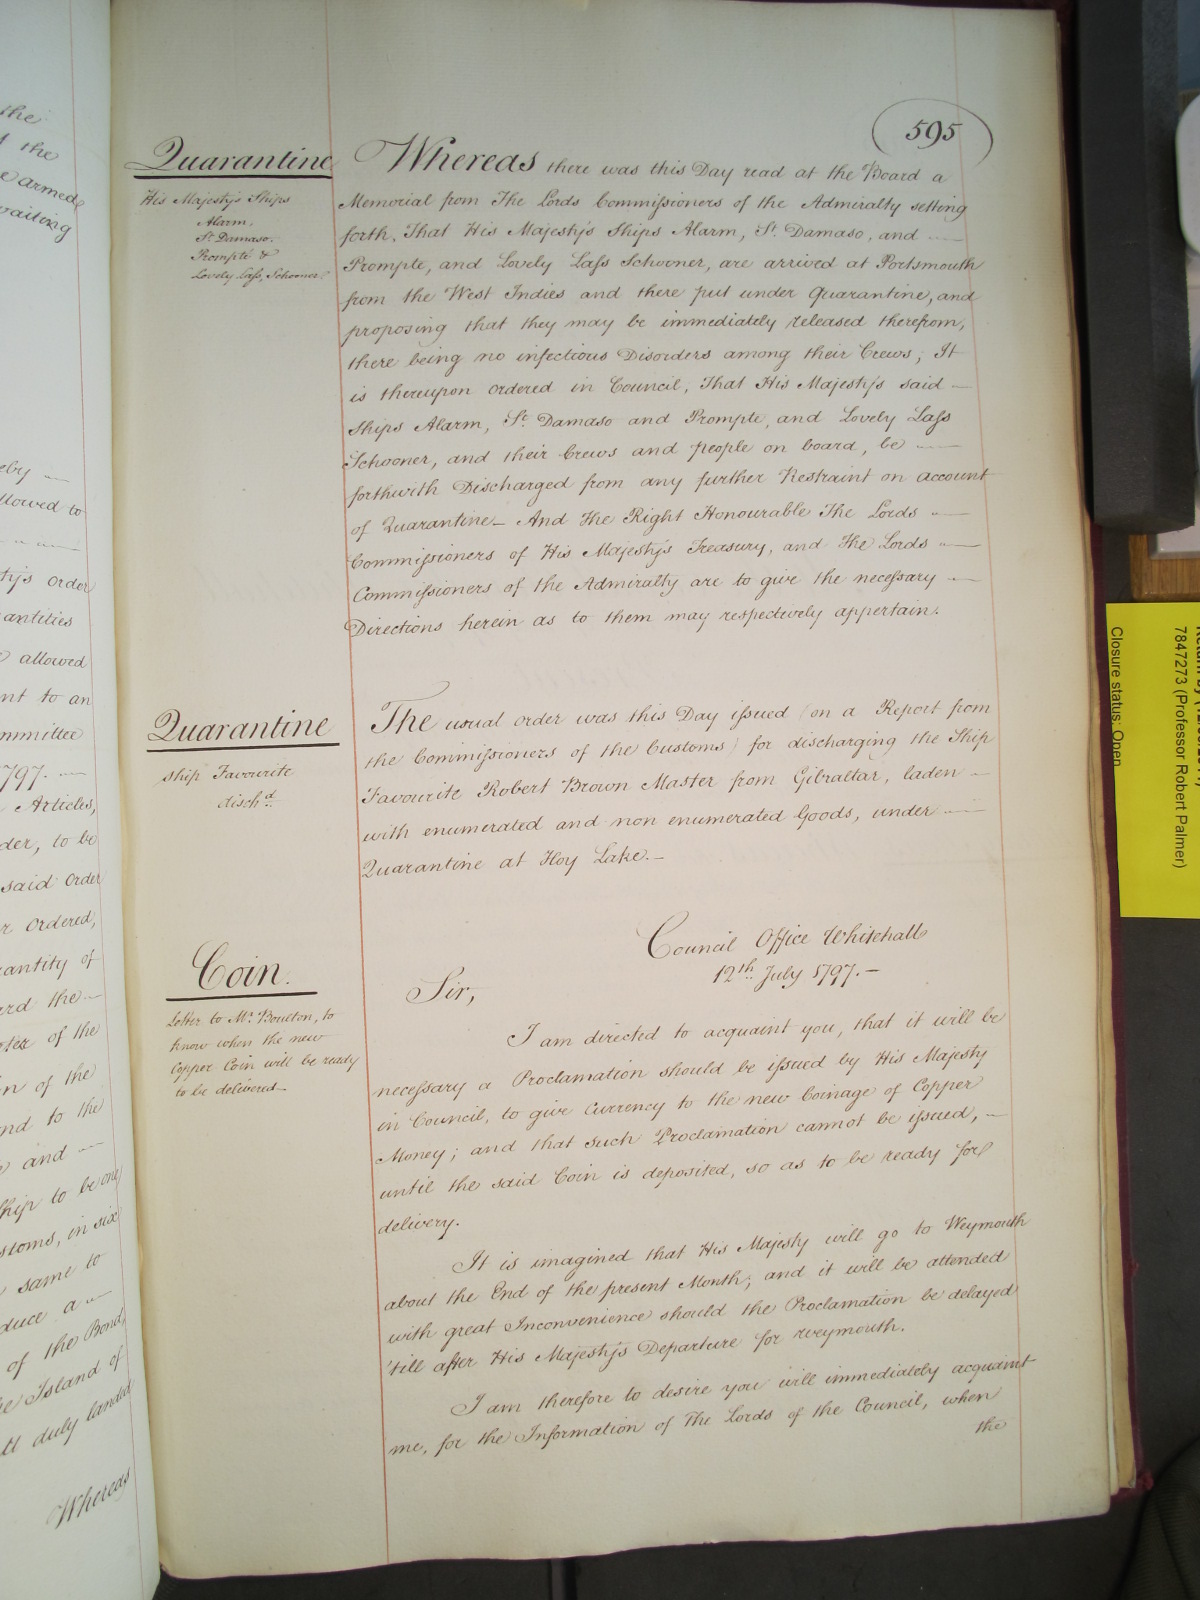 the
the
armed
waiting
eby
llowed to
ty's order
antities
allowed
nt to an
mmittee
797.
Articles,
der, to be
said Order
r ordered,
antity of
ard the
of the
n of the
nd to the
and
hip to be
stoms, in six
same to
duce a
of the Bond,
Island of
duly landed
Whereas
595
Quarantine
His Majesty's Ships
Alarm.
St. Damaso.
Prompte &
Lovely Lass, Schooner.
Whereas there was this Day read at the Board a
Memorial from The Lords Commissioners of the Admiralty setting
forth, That His Majesty's Ships Alarm, St. Damaso, and
Prompte, and Lovely Lass Schooner, are arrived at Portsmouth
from the West Indies and there put under Quarantine, and
proposing that they may be immediately released therefrom,
there being no infectious Disorders among their Crews; It
is thereupon ordered in Council, That His Majesty's said
Ships Alarm, St. Damaso and Prompte, and Lovely Lass
Schooner, and their Crews and people on board, be
forthwith Discharged from any further Restraint on account
of Quarantine— And The Right Honourable The Lords
Commissioners of His Majesty's Treasury, and The Lords
Commissioners of the Admiralty are to give the necessary
Directions herein as to them may respectively appertain.
Quarantine
Ship Favourite
dischd.
The usual order was this Day issued (on a Report from
the Commissioners of the Customs) for discharging the Ship
Favourite Robert Brown Master from Gibraltar, laden
with enumerated and non enumerated Goods, under
Quarantine at Hoy Lake.—
Coin.
Letter to Mr. Boulton, to
know when the new
Copper Coin will be ready
to be delivered—
Council Office Whitehall
12th. July 1797.—
Sir,
I am directed to acquaint you, that it will be
necessary a Proclamation should be issued by His Majesty
in Council, to give Currency to the new Coinage of Copper
Money; and that such Proclamation cannot be issued,
until the said Coin is deposited, so as to be ready for
delivery.
It is imagined that His Majesty will go to Weymouth
about the End of the present Month, and it will be attended
with great Inconvenience should the Proclamation be delayed
'till after His Majesty's Departure for Weymouth.
I am therefore to desire you will immediately acquaint
me, for the Information of The Lords of the Council, when
the
7847273 (Professor Robert Palmer)
Closure status: Open